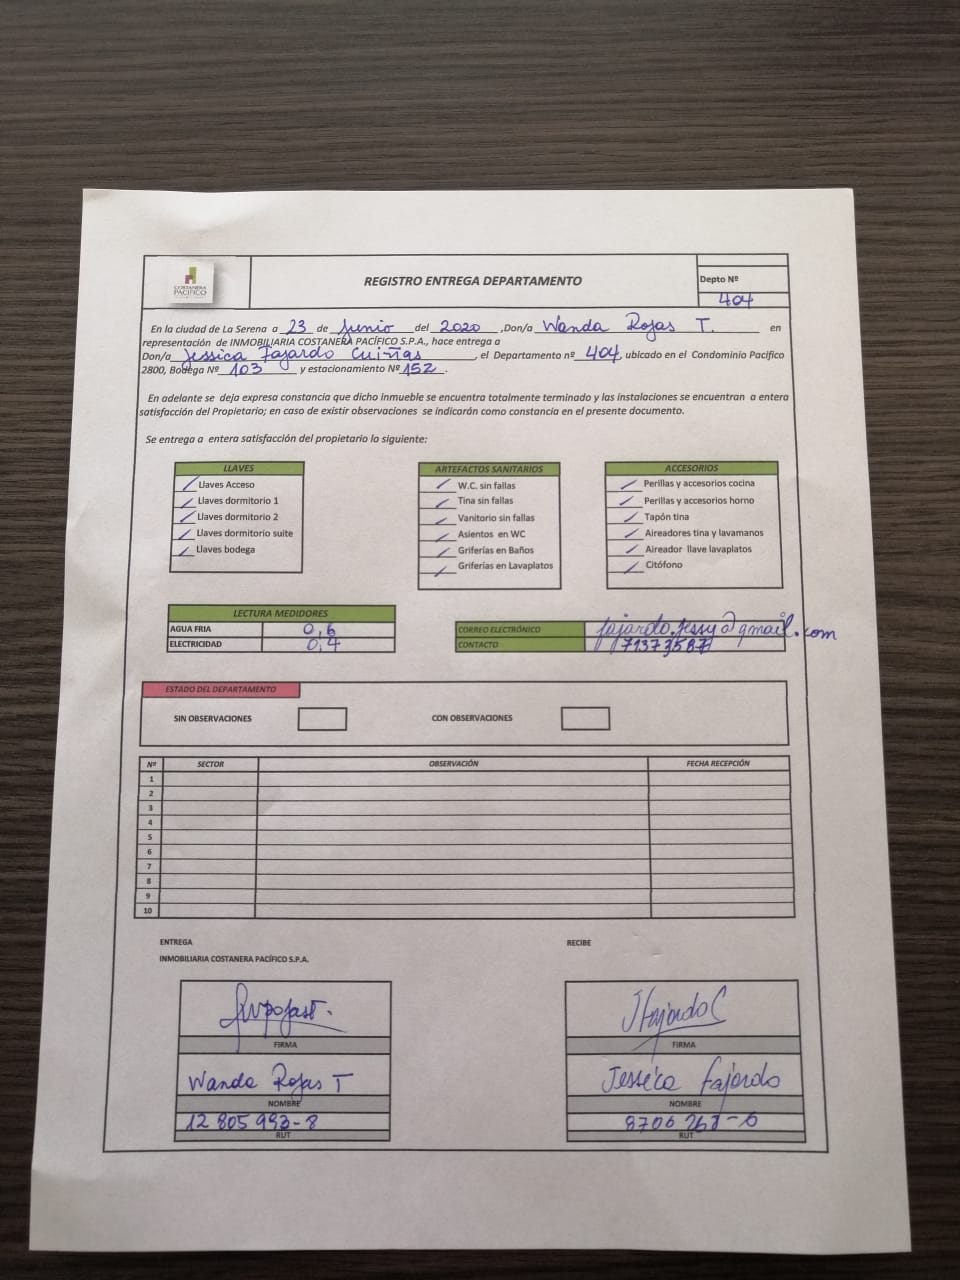 COSTANERA
PACÍFICO
REGISTRO ENTREGA DEPARTAMENTO
Depto Nº
404
En la ciudad de La Serena a 23 de Junio del 2020 ,Don/a Wanda Rojas T. en
representación de INMOBILIARIA COSTANERA PACÍFICO S.P.A., hace entrega a
Don/a Jessica Fajardo Cuiñas , el Departamento nº 404, ubicado en el Condominio Pacifico
2800, Bodega Nº 103 y estacionamiento Nº 152 .
En adelante se deja expresa constancia que dicho inmueble se encuentra totalmente terminado y las instalaciones se encuentran a entera
satisfacción del Propietario; en caso de existir observaciones se indicarán como constancia en el presente documento.
Se entrega a entera satisfacción del propietario lo siguiente:
LLAVES
Llaves Acceso
Llaves dormitorio 1
Llaves dormitorio 2
Llaves dormitorio suite
Llaves bodega
ARTEFACTOS SANITARIOS
W.C. sin fallas
Tina sin fallas
Vanitorio sin fallas
Asientos en WC
Griferías en Baños
Griferías en Lavaplatos
ACCESORIOS
Perillas y accesorios cocina
Perillas y accesorios horno
Tapón tina
Aireadores tina y lavamanos
Aireador llave lavaplatos
Citófono
LECTURA MEDIDORES
AGUA FRIA 0,6
ELECTRICIDAD 0,4
CORREO ELECTRÓNICO fajardo.jessy@gmail.com
CONTACTO 71373587
ESTADO DEL DEPARTAMENTO
SIN OBSERVACIONES CON OBSERVACIONES
Nº SECTOR OBSERVACIÓN FECHA RECEPCIÓN
1
2
3
4
5
6
7
8
9
10
ENTREGA
INMOBILIARIA COSTANERA PACÍFICO S.P.A.
FIRMA
Wanda Rojas T
NOMBRE
12 805 993-8
RUT
RECIBE
JFajardoC
FIRMA
Jessica Fajardo
NOMBRE
8706268-6
RUT